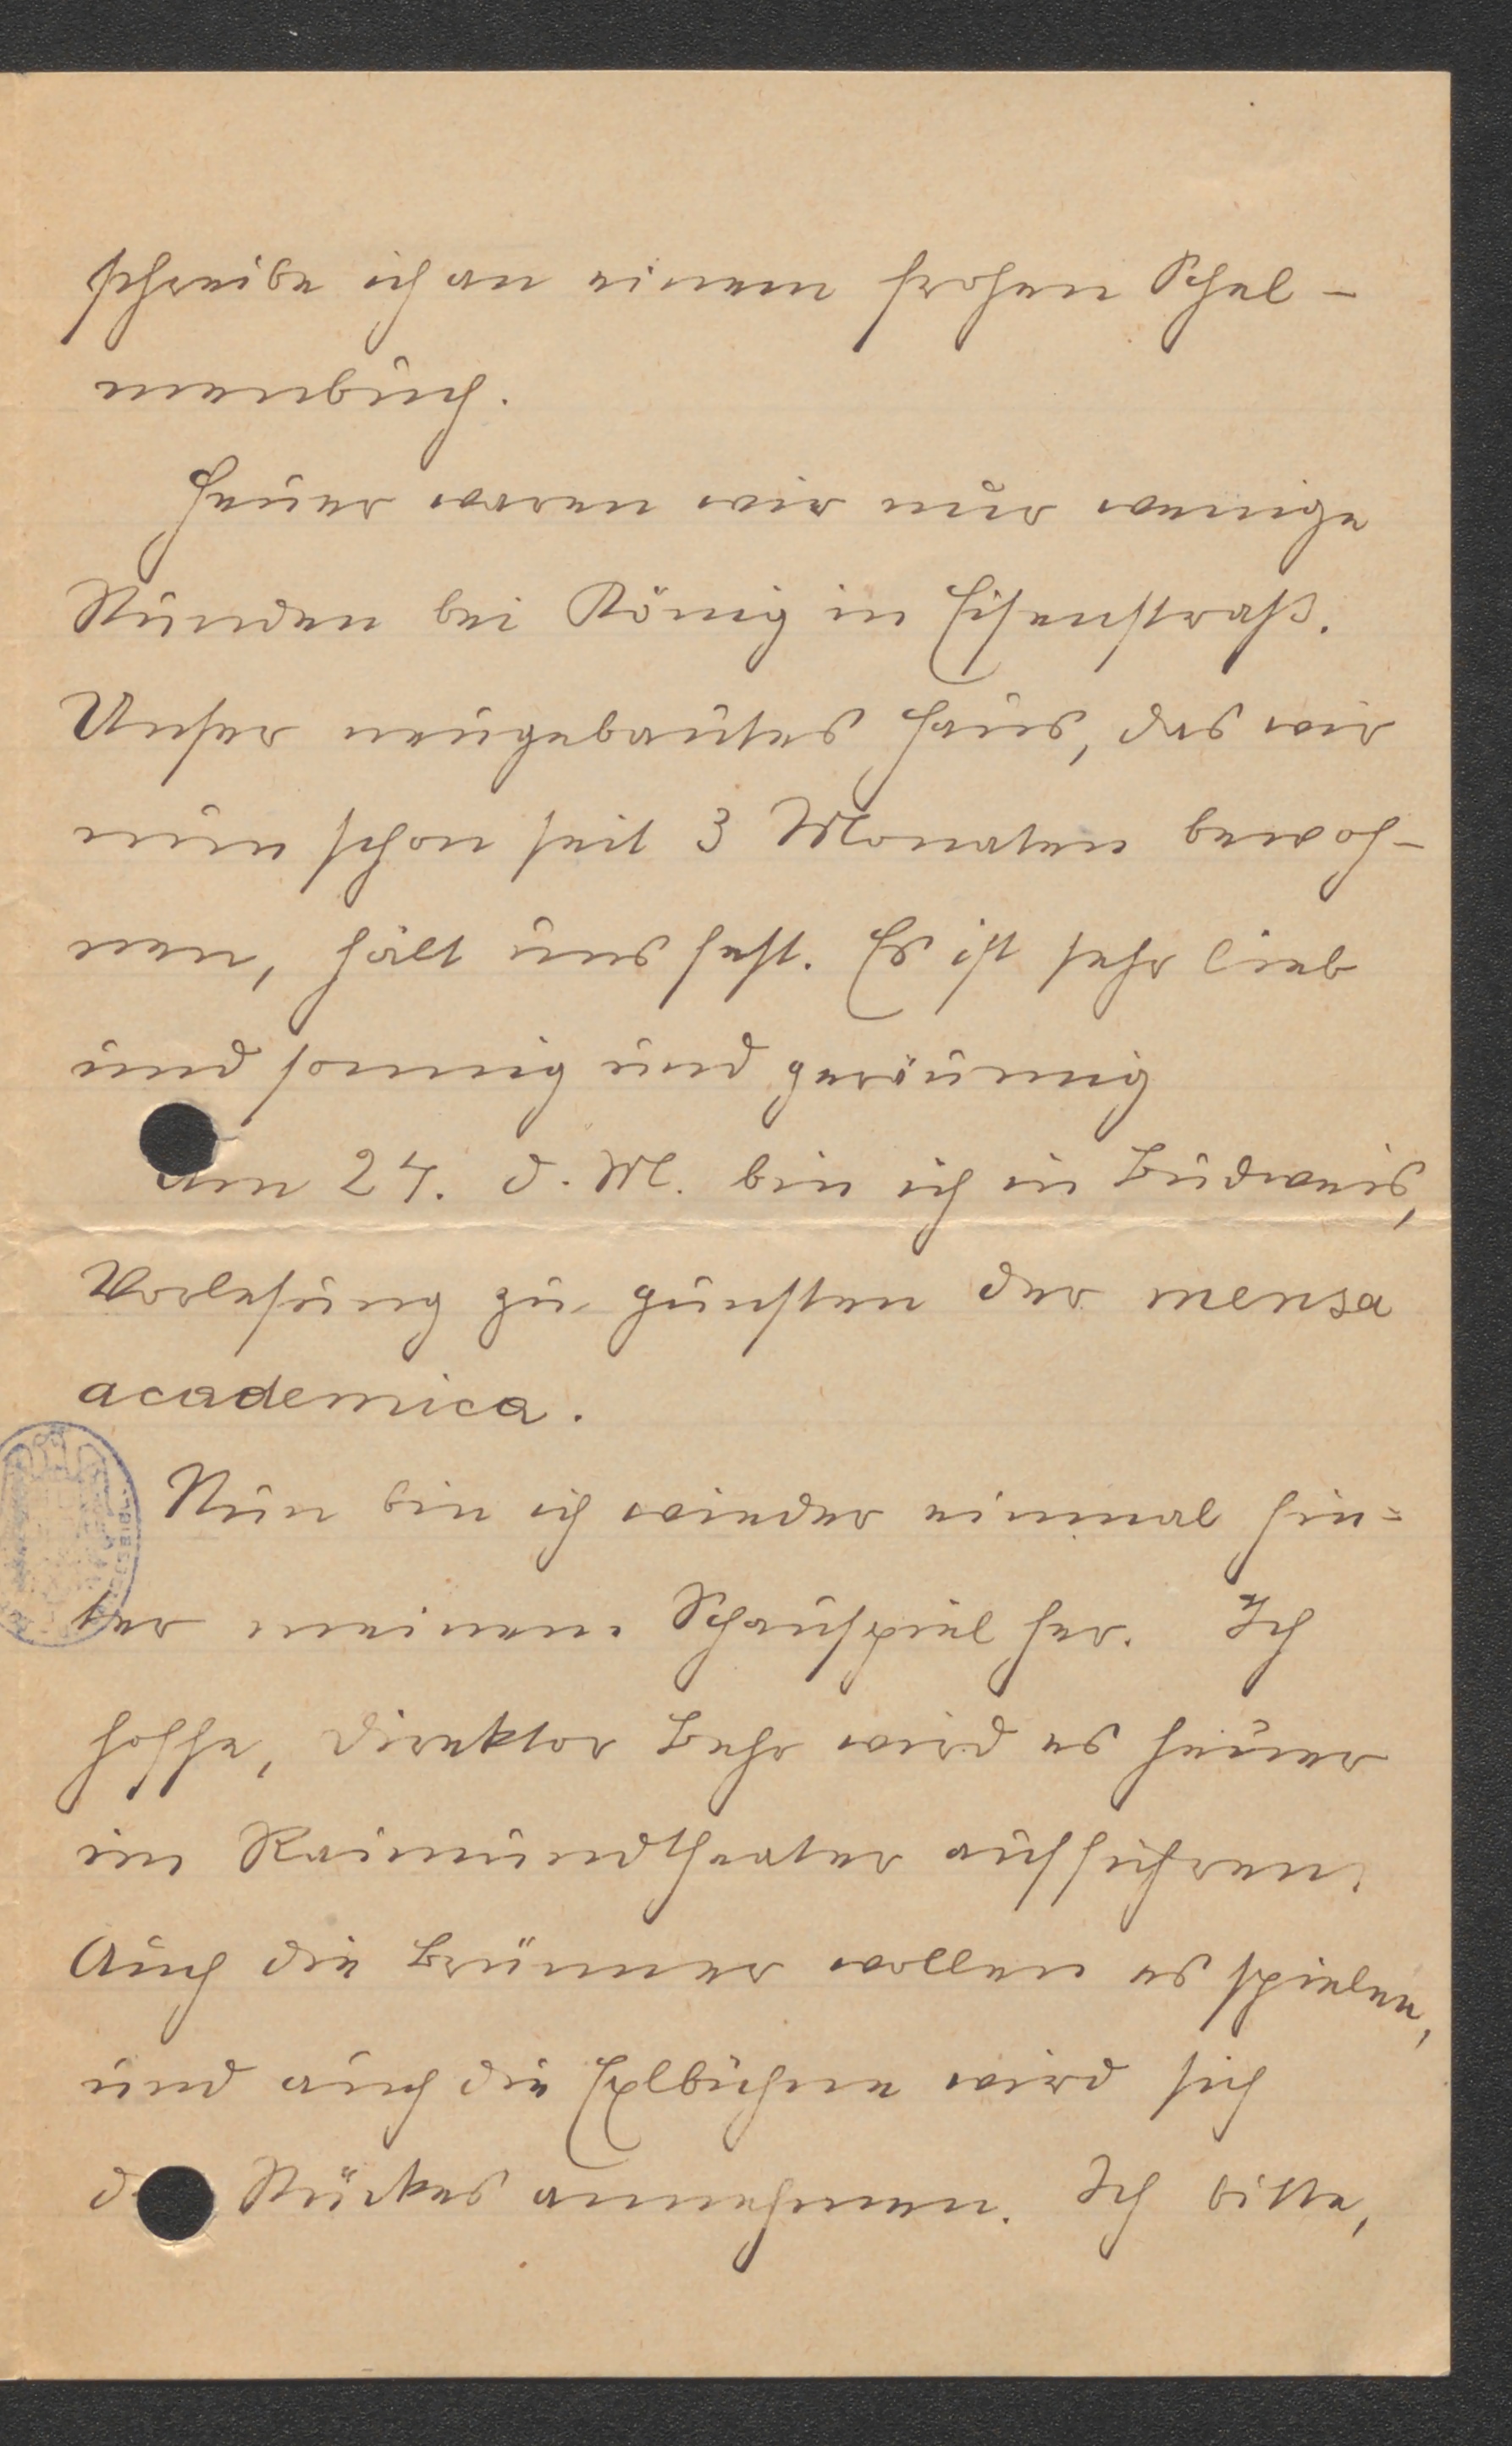 schreibe ich an einem frohen Schel-
menbuch.
Heuer waren wir nur wenige
Stunden bei König in Eisenstraß.
Unser neugebautes Haus, das wir
nun schon seit 3 Monaten bewoh-
nen, hält uns fest. Es ist sehr lieb
und sonnig und geräumig
Am 24. d. M. bin ich in Budweis,
Vorlesung zu gunsten der mensa
academica.
Nun bin ich wieder einmal hin-
ter meinem Schauspiel her. Ich
hoffe, Direktor Behr wird es heuer
im Raimundtheater aufführen.
Auch die Brünner wollen es spielen,
und auch die Exlbühne wird sich
d Stückes annehmen. Ich bitte,